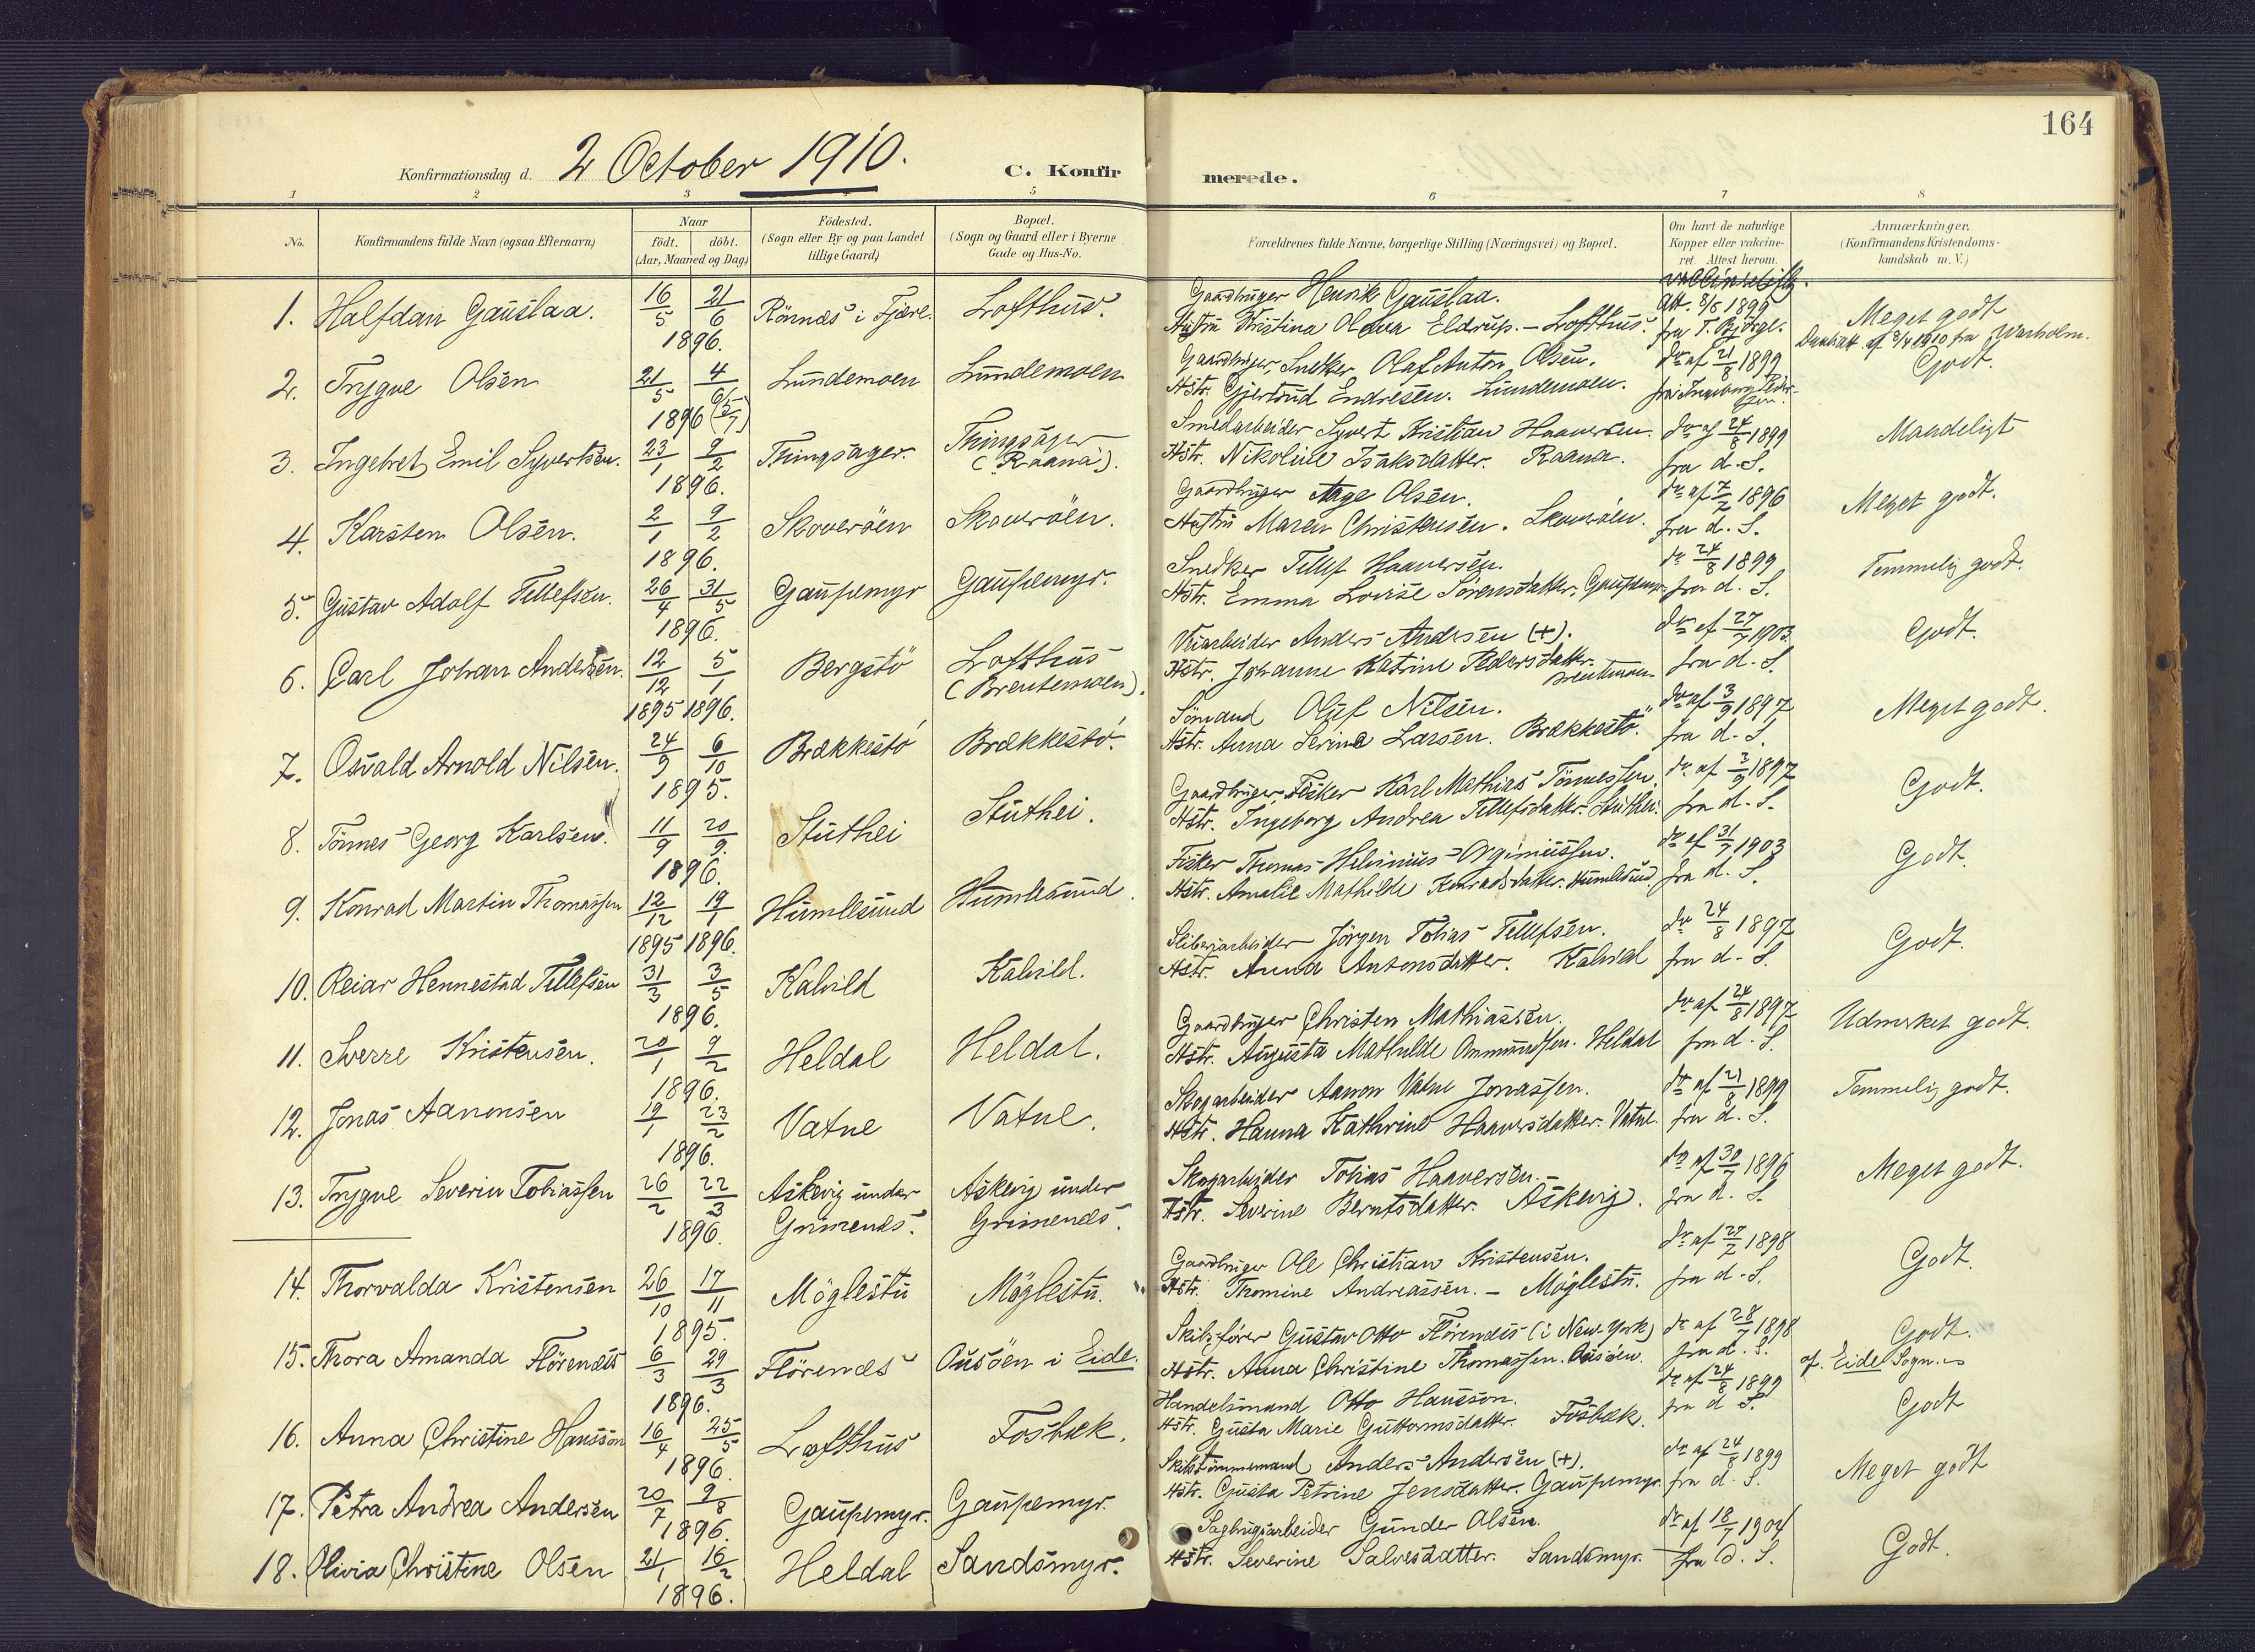 164
Konfirmationsdag d. 2 October 1910. C. Konfirmerede.
1 2 3 4 5 6 7 8
No. Konfirmandens fulde Navn (ogsaa Efternavn) Naar født. døbt. (Aar, Maaned og Dag) Fødested. (Sogn eller By og paa Landet tillige Gaard) Bopæl. (Sogn og Gaard eller i Byerne Gade og Hus-No. Forældrenes fulde Navne, borgerlige Stilling (Næringsvei) og Bopæl. Om havt de naturlige Kopper eller vakcineret. Attest herom. Anmærkninger. (Konfirmandens Kristendomskundskab m. V.)
1. Halfdan Gauslaa. 16/5 21/6 1896. Rønnes i Fjære. Lofthus.
Gaardbruger Henrik Gauslaa.
Hustru Kristina Olava Eldrup. - Lofthus.
Att. 8/5 1899 fra T. Bjørge.
Meget godt
Daabsatt. af 3/4 1910 fra Warholm.
2. Trygve Olsen 21/5 4/6 1896 (5/7) Lundemoen Lundemoen
Gaardbruger, Snekker Olaf Anton Olsen.
Hstr. Gjertrud Endresen. Lundemoen.
do af 21/8 1899
fra Ingeborg
Godt.
3. Ingebret Emil Syvertsen. 23/1 9/2 1896. Thingsager. Thingsager (Raana).
Smedarbeider Syvert Kristian Haaversen.
Hstr. Nikoline Isaksdatter. Raana.
do af 24/8 1899
fra d. S.
Mandeligt
4. Karsten Olsen. 2/1 9/2 1896. Skoverøen Skoverøen.
Gaardbruger Aage Olsen.
Hustru Maren Christensen. Skoverøen.
do af 7/7 1896
fra d. S.
Meget godt.
5. Gustav Adolf Tellefsen. 26/4 31/5 1896. Gaupemyr Gaupemyr.
Snedker Tellef Haaversen.
Hstr. Emma Lovise Sørensdatter. Gaupemyr
do 24/8 1899
fra d. S.
Temmelig godt.
6. Carl Johan Andersen. 12/12 1895 5/1 1896. Bergstø Lofthus (Brentemoen).
Veiarbeider Anders Andersen (+).
Hstr. Johanne Katrine Pedersdatter. Brentemoen
do af 27/7 1903
fra d. S.
Godt.
7. Osvald Arnold Nilsen. 24/9 6/10 1895. Brækkestø Brækkestø.
Sømand Oluf Nilsen.
Hstr. Anna Serine Larsen. Brækkestø.
do af 3/9 1897
fra d. S.
Meget godt.
8. Tønnes Georg Karlsen. 11/9 20/9. 1896. Stuthei Stuthei.
Gaardbruger Fisker Karl Mathias Tønnessen.
Hstr. Ingeborg Andrea Tellefsdatter. Stuthei.
do af 3/9 1897
fra d. S.
Godt.
9. Konrad Martin Thomassen 12/12 1895 19/1 1896. Humlesund Humlesund.
Fisker Thomas Helvinius Orginiussen.
Hstr. Amalie Mathilde Konradsdatter. Humlesund.
do af 31/7 1903
fra d. S.
Godt.
10. Reiar Hennestad Tellefsen 31/3 3/5 1896. Kalvild Kalvild.
Sliberiarbeider Jørgen Tobias Tellefsen.
Hstr. Anna Antonsdatter. Kalvild
do 24/8 1897
fra d. S.
Godt.
11. Sverre Kristensen. 20/1 9/2 1896. Heldal Heldal.
Gaardbruger Christen Mathiassen.
Hstr. Augusta Mathilde Ommundsen. Heldal
do af 24/8 1897
fra d. S.
Udmerket godt.
12. Jonas Aanonsen 19/1 23/2 1896. Vatne Vatne.
Skogarbeider Aanon Vatne Jonassen.
Hstr. Hanna Kathrine Haaversdatter. Vatne.
do af 21/8 1899
fra d. S.
Temmelig godt.
13. Trygve Severin Tobiassen 26/2 22/3 1896. Askevig under Grimenes. Askevig under Grimenes.
Skogarbeider Tobias Haaversen.
Hstr. Severine Berntsdatter. Askevig.
do af 30/7 1896
fra d. S.
Meget godt.
14. Thorvalda Kristensen 26/10 17/11 1895. Møglestu Møglestu.
Gaardbruger Ole Christian Kristensen.
Hstr. Thomine Andreassen. - Møglestu.
do af 27/7 1898
fra d. S.
Godt.
15. Thora Amanda Flørenæs 6/3 29/3 1896. Flørenæs Ousøen i Eide.
Skibsfører Gustav Otto Flørenæs (i New York)
Hstr. Anna Christine Thomassen. Ousøen.
do af 28/7 1898
fra d. S.
Godt.
af. Eide Sogn.
16. Anna Christine Hansson 16/4 25/5 1896. Lofthus Fosbæk.
Handelsmand Otto Hansson.
Hstr. Gusta Marie Guttormsdatter. Fosbæk.
do af 24/8 1899
fra d. S.
Godt
17. Petra Andrea Andersen 20/7 9/8 1896. Gaupemyr. Gaupemyr.
Skibstømmermand Anders Andersen (+).
Hstr. Gusta Petrine Jensdatter. Gaupemyr.
do af 24/8 1899
fra d. S.
Meget godt
18. Olivia Christine Olsen 21/1 16/2 1896. Heldal Sandsmyr.
Sagbrugsarbeider Gunder Olsen.
Hstr. Severine Salvesdatter. Sandsmyr.
do af 18/7 1904
fra d. S.
Godt.